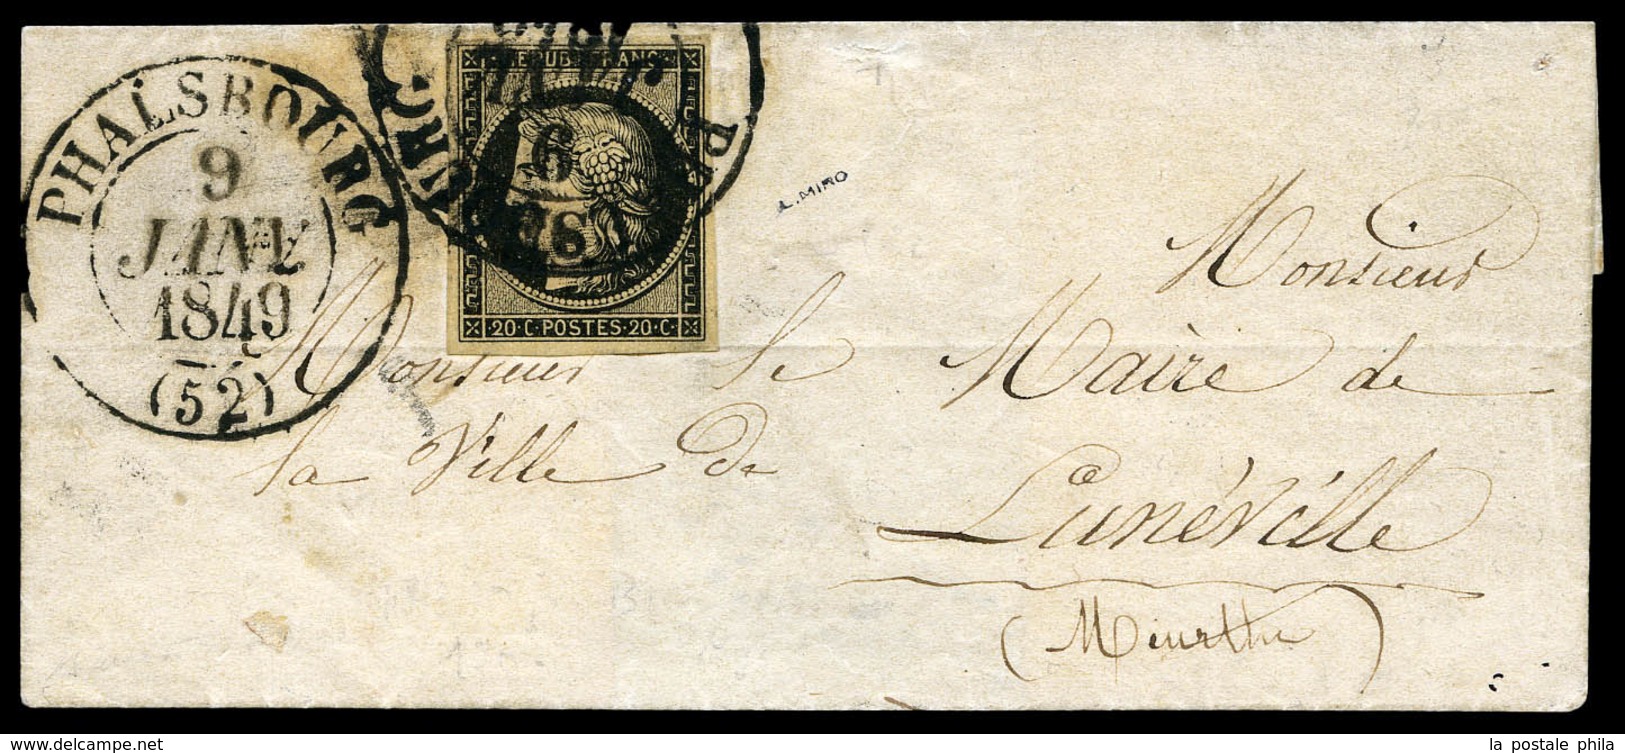 PHALSBOURG
9
JANV
1849
(52)
REPUB. FRANC.
20 · C · POSTES · 20 · C ·
L. MIRO
Monsieur
Monsieur le Maire de
la Ville de Lunéville
(Meurthe)
la postale phila